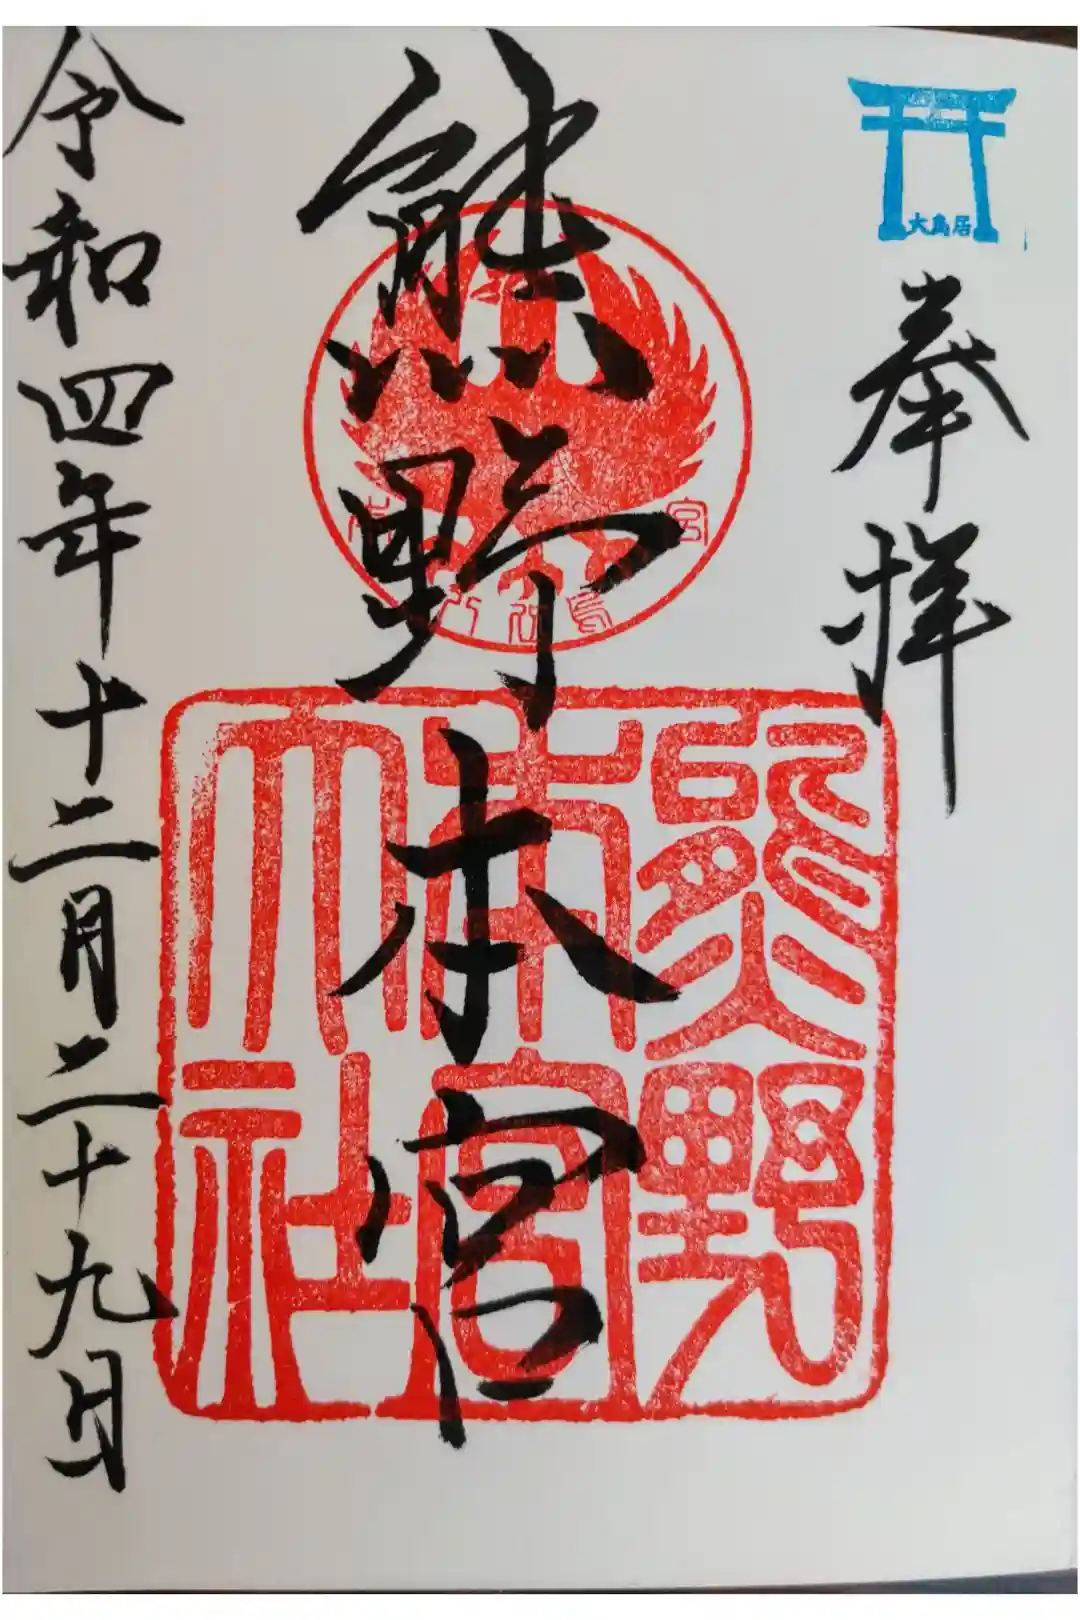 大鳥居
奉拝
熊野本宮
熊野
本宮
大社
令和四年十二月二十九日